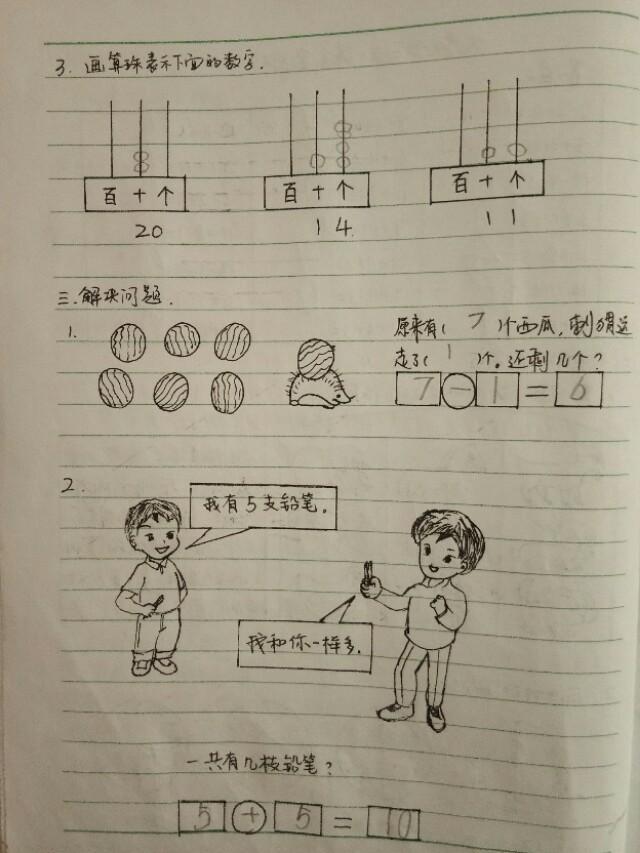 3. 画算珠表示下面的数字.
百 十 个
百 十 个
百 十 个
20
14
11
三.解决问题.
1.
原来有( 7 )个西瓜,刺猬运
走了( 1 )个。还剩几个?
7-1=6
2.
我有5支铅笔。
我和你一样多.
一共有几枝铅笔?
5+5=10